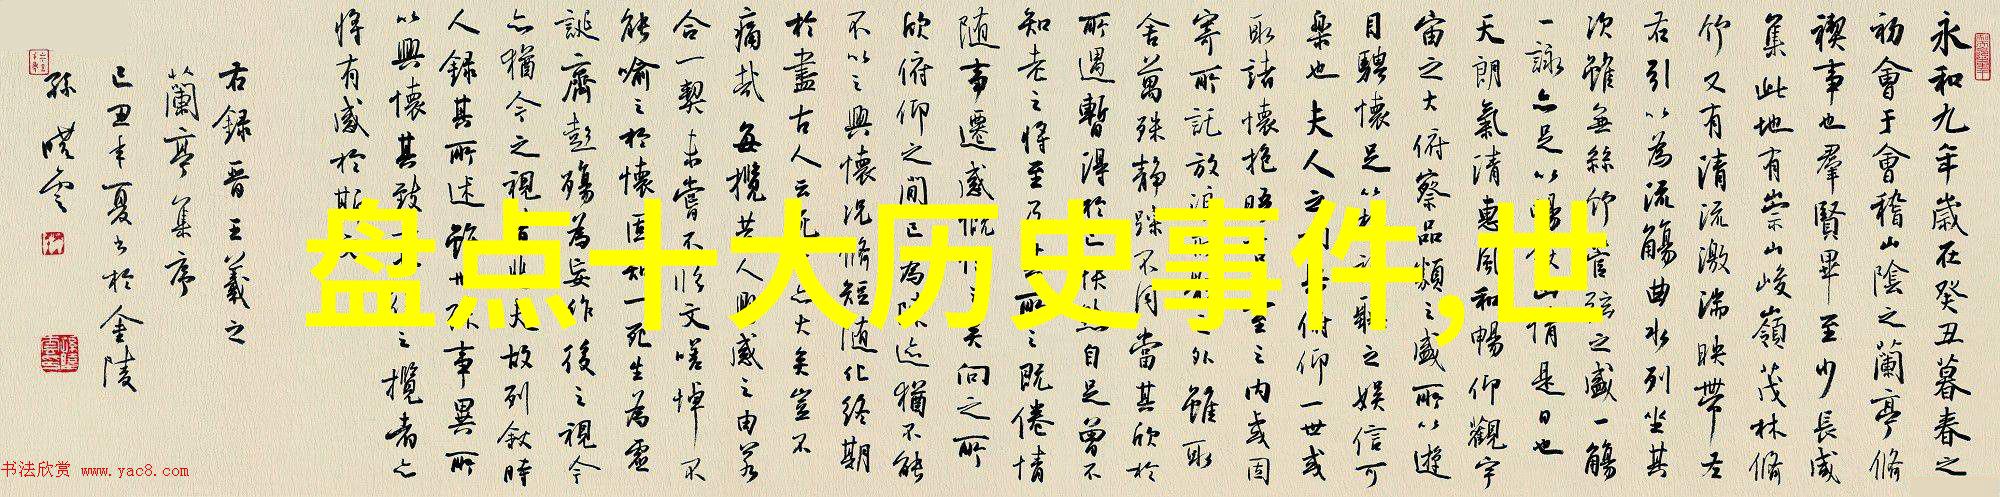 盘点十大历史事件,世
永和九年歲在癸丑暮春之
初會于會稽山陰之蘭亭脩
禊事也羣賢畢至少長咸
集此地有崇山峻嶺茂林脩
竹又有清流激湍映帶左
右引以為流觴曲水列坐其
次雖無絲竹管弦之盛一觴
一詠亦足以暢情是日也
天朗氣清惠風和暢仰觀宇
宙之大俯察品類之盛所以遊
目騁懷足以聽之娛信可
樂也夫人之相與俯仰一世或
取諸懷抱晤室之內或因
寄所託放浪之外雖取
舍萬殊靜躁不同當其欣於
所遇暫得於己快然自足曾不
知老之將至及所之既倦情
隨事遷感慨矣向之所
欣俯仰之間已為陳迹猶不能
不以之興懷況脩短隨化終期
於盡古人云死亦大矣豈不
痛哉每攬昔人興感之由若
合一契未嘗不臨文嗟悼不
能喻之於懷固知一死生為虛
誕齊彭殤為妄作後之視今
亦猶今之視昔悲夫故列叙時
人錄其所述雖世殊事異所
以興懷其致後之攬者亦
將有感於斯文
右錄晉王羲之
蘭亭集序
己丑年夏書於金陵
孫曉雲
书法欣赏 www.yac8.com